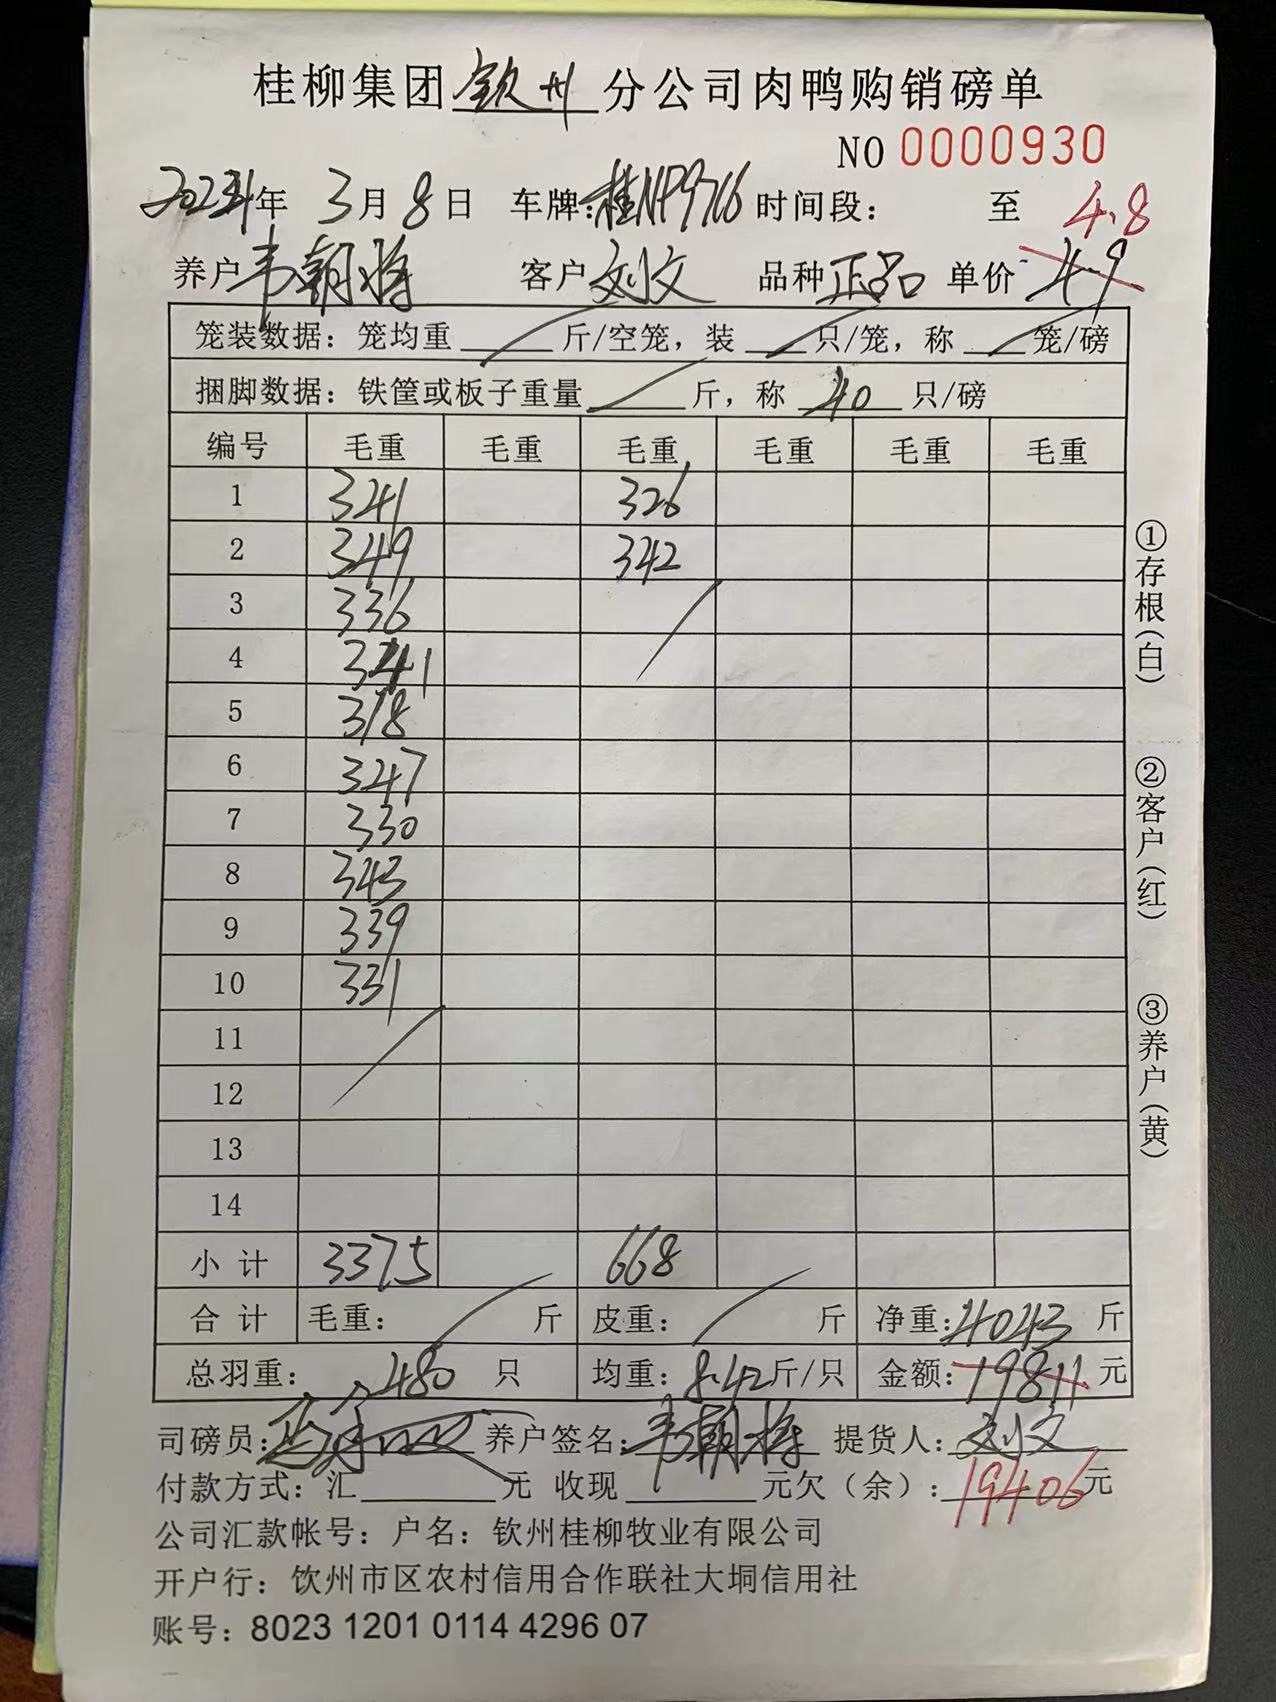 桂柳集团 钦州 分公司肉鸭购销磅单
NO 0000930
年 3月8日 车牌:桂NP9766 时间段: 至 4.8
养户 韦朝将 客户 刘文 品种 正品 单价 4.9
笼装数据: 笼均重 斤/空笼, 装 只/笼, 称 笼/磅
捆脚数据: 铁筐或板子重量 斤, 称 40 只/磅
编号 毛重 毛重 毛重 毛重 毛重 毛重
1 341 326
2 349 342
3 336
4 341
5 318
6 347
7 330
8 343
9 339
10 331
11
12
13
14
小计 3375 668
合计 毛重: 斤 皮重: 斤 净重: 4043 斤
总羽重: 480 只 均重: 8.42 斤/只 金额: 19811 元
司磅员: 养户签名: 韦朝将 提货人: 刘文
付款方式: 汇 元 收现 元欠(余): 19406 元
公司汇款帐号: 户名: 钦州桂柳牧业有限公司
开户行: 钦州市区农村信用合作联社大垌信用社
账号: 8023 1201 0114 4296 07
①存根(白)
②客户(红)
③养户(黄)